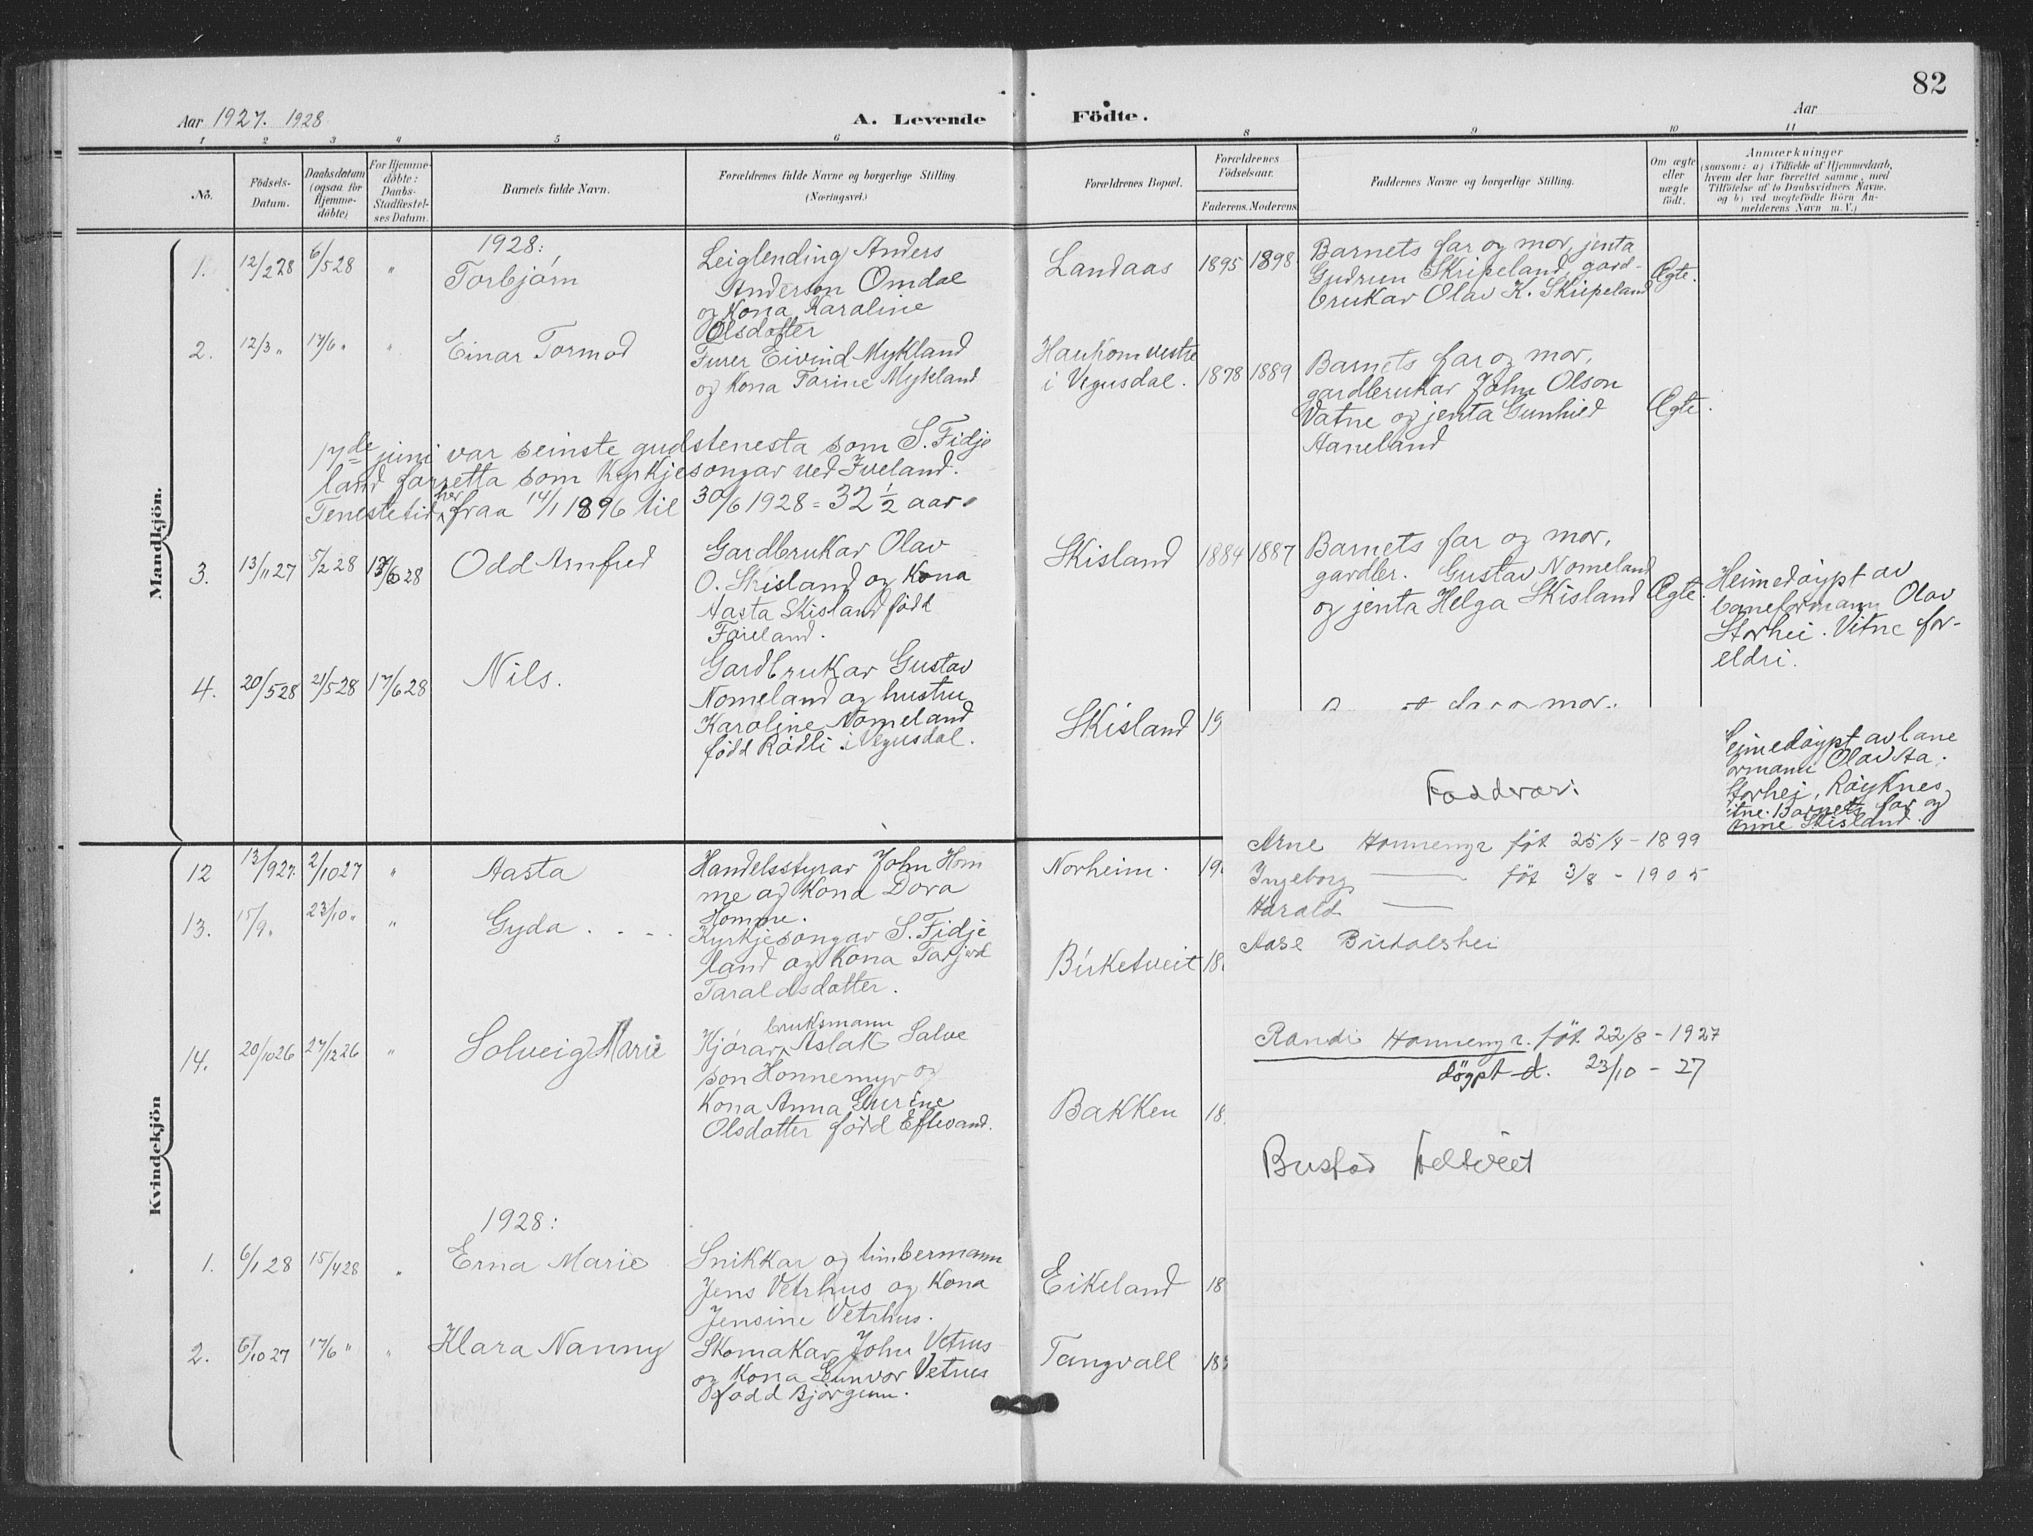 82
Aar 1927. 1928
A. Levende
Födte.
Aar
1 2 3 4 5 6 8 9 10 11
No.
Födsels-
Datum.
Daabsdatum
(ogsaa for
Hjemme-
döbte)
For Hjemme-
döbte:
Daabs-
Stadfæstel-
ses Datum.
Barnets fulde Navn.
Forældrenes fulde Navne og borgerlige Stilling
(Næringsvei.)
Forældrenes Bopæl.
Forældrenes
Födselsaar.
Faderens. Moderens.
Faddernes Navne og borgerlige Stilling.
Om ægte
eller
uægte
födt.
Anmærkninger
(saasom: a) i Tilfælde af Hjemmedaab,
hvem der har forrettet samme, med
Tilföielse af to Daabsvidners Navne,
og b) ved uægtefödte Börn An-
melderens Navn m. V.)
Mandkjön.
1928:
1. 12/2 28 6/5 28 " Torbjørn
Leiglending Anders
Anderson Omdal
og Kona Karaline
Olsdotter
Landaas 1895 1898
Barnets far og mor, jenta
Gudrun Skripeland, gard-
brukar Olav K. Skripeland
Ægte.
2. 12/3 " 17/6 " " Einar Tormod
Furer Eivind Mykland
og Kona Tarine Mykland
Haukom vestre
i Vegusdal. 1878 1889
Barnets far og mor,
gardbrukar John Olson
Vatne og jenta Gunhild
Aaneland
Ægte.
17de juni var seinste gudstenesta som S. Fidje
land forretta som Kyrkjesongar ved Iveland.
Tenestetid her fraa 14/1 1896 til 30/6 1928 = 32 1/2 aar.
3. 13/11 27 5/2 28 17/6 28 Odd Arnfred
Gardbrukar Olav
O. Skisland og Kona
Aasta Skisland født
Frøieland.
Skisland 1884 1887
Barnets far og mor,
gardbr. Gustav Nomeland
og jenta Helga Skisland
Ægte.
Heimedøypt av
baneformann Olav
Storhei. Vitne for-
eldri.
4. 20/5 28 21/5 28 17/6 28 Nils.
Gardbrukar Gustav
Nomeland og hustru
Karoline Nomeland
født Rødli i Vegusdal.
Skisland 19
far og mor.
eimedøypt av bane
ormann Olav Aa.
Storhei, Røyknes,
itne. Barnets far og
Anne Skisland.
Kvindekjön
12 13/9 27. 2/10 27 " Aasta
Handelsstyrar John Hom
me og Kona Dora
Homme.
Norheim. 19
13. 15/9. 23/10. " Gyda
Kyrkjesongar S. Fidje
land og Kona Tarjerd
Taraldsdotter.
Birketveit 18
14. 20/10 26 27/12 26 " Solveig Marie
bruksmann
Kjørar Aslak Salve
son Honnemyr og
Kona Anna Gurine
Olsdotter født Eftevand.
Bakken 18
1928:
1. 6/1 28 15/4 28 " Erna Marie
Snikkar og timbermann
Jens Vetrhus og Kona
Jensine Vetrhus.
Eikeland 18
2. 6/10 27 17/6 " " Klara Nanny
Skomakar John Vetrus
og Kona Gunvor Vetrus
født Bjørgum.
Tangvall 18
Faddrar:
Arne Honnemyr føt 25/4 - 1899
Ingeborg føt 3/8 - 1905
Harald
Aase Birdalshei
Randi Honnemyr. føt 22/8 - 1927
døypt d. 23/10 - 27
Bustad Heltveit